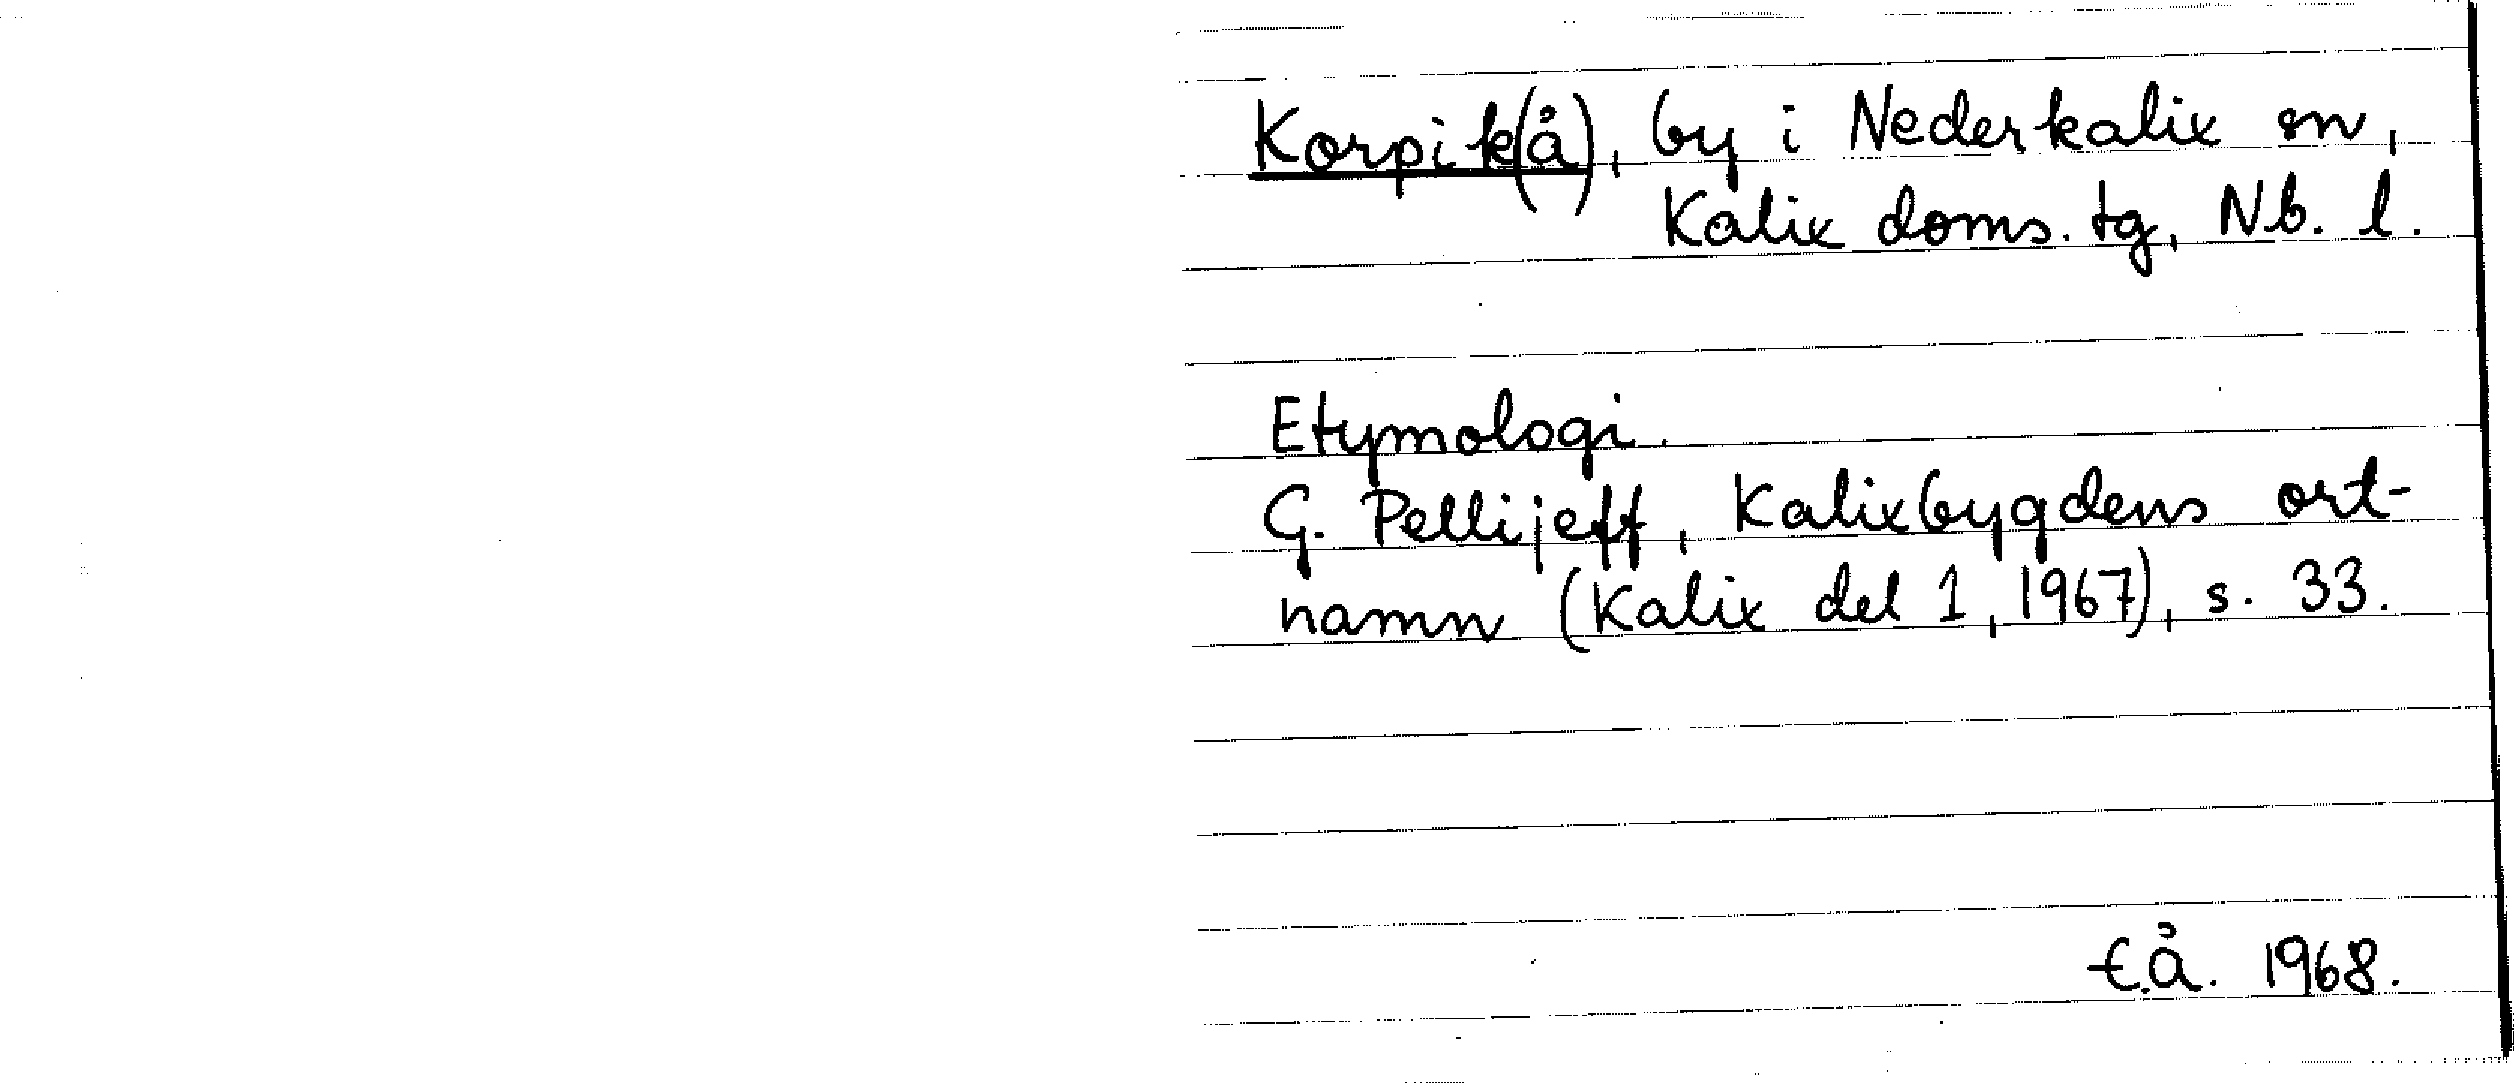 Korpik(å), by i Nederkalix sn,
Kalix doms. tg, Nb. l.
Etymologi.
G. Pellijeff, Kalixbygdens ort-
namn (Kalix del 1, 1967), s. 33.
E.Å. 1968.